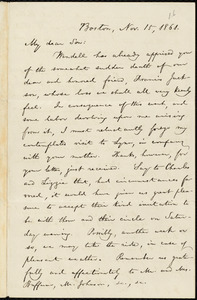 Boston, Nov. 15, 1861.
My dear Son:
Wendell has already apprised you
of the somewhat sudden death of our
dear and honored friend, Francis Jack-
son, whose loss we shall all very keenly
feel. In consequence of this event, and
some labor devolving upon me arising
from it, I must reluctantly forego my
contemplated visit to Lynn, in company
with your mother. Thanks, however, for
your letter, just received. Say to Charles
and Lizzie that, had circumstances fa-
vored, it would have given us great plea-
sure to accept their kind invitation to
be with them and their circle on Satur-
day evening. Possibly, another week or
so, we may take the ride, in case of
pleasant weather. Remember us grate-
fully and affectionately to Mr. and Mrs.
Buffum, Mr. Johnson, &c., &c.